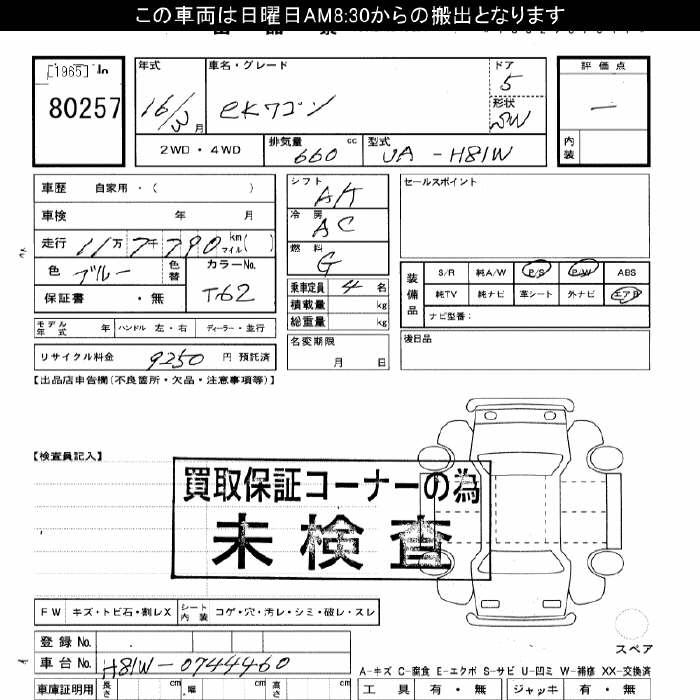 この車両は日曜日AM8:30からの搬出となります
[1965] No
80257
年式 車名・グレード ドア 評価点
16/3月 eKワゴン 5 —
形状 SW
2WD・4WD 排気量 660 cc 型式 UA-H81W 内装
車歴 自家用・( )
車検 年 月
走行 11万7千790 km マイル( )
色 ブルー 色替 カラーNo. T62
保証書 ・無
モデル年式 年 ハンドル 左・右 ディーラー・並行
リサイクル料金 9250 円 預託済
シフト AT
冷房 AC
燃料 G
乗車定員 4 名
積載量 kg
総重量 kg
名変期限
月 日
セールスポイント
装備品 S/R 純A/W P/S P/W ABS
純TV 純ナビ 革シート 外ナビ エアB
ナビ型番:
後日品
【出品店申告欄(不良箇所・欠品・注意事項等)】
【検査員記入】
買取保証コーナーの為
未検査
FW キズ・トビ石・割レX シート内装 コゲ・穴・汚レ・シミ・破レ・スレ
スペア
登録 No.
車台 No. H81W-0744460
A-キズ C-腐食 E-エクボ S-サビ U-凹ミ W-補修 XX-交換済
車庫証明用 長さ cm 幅 cm 高さ cm 工具 有・無 ジャッキ 有・無